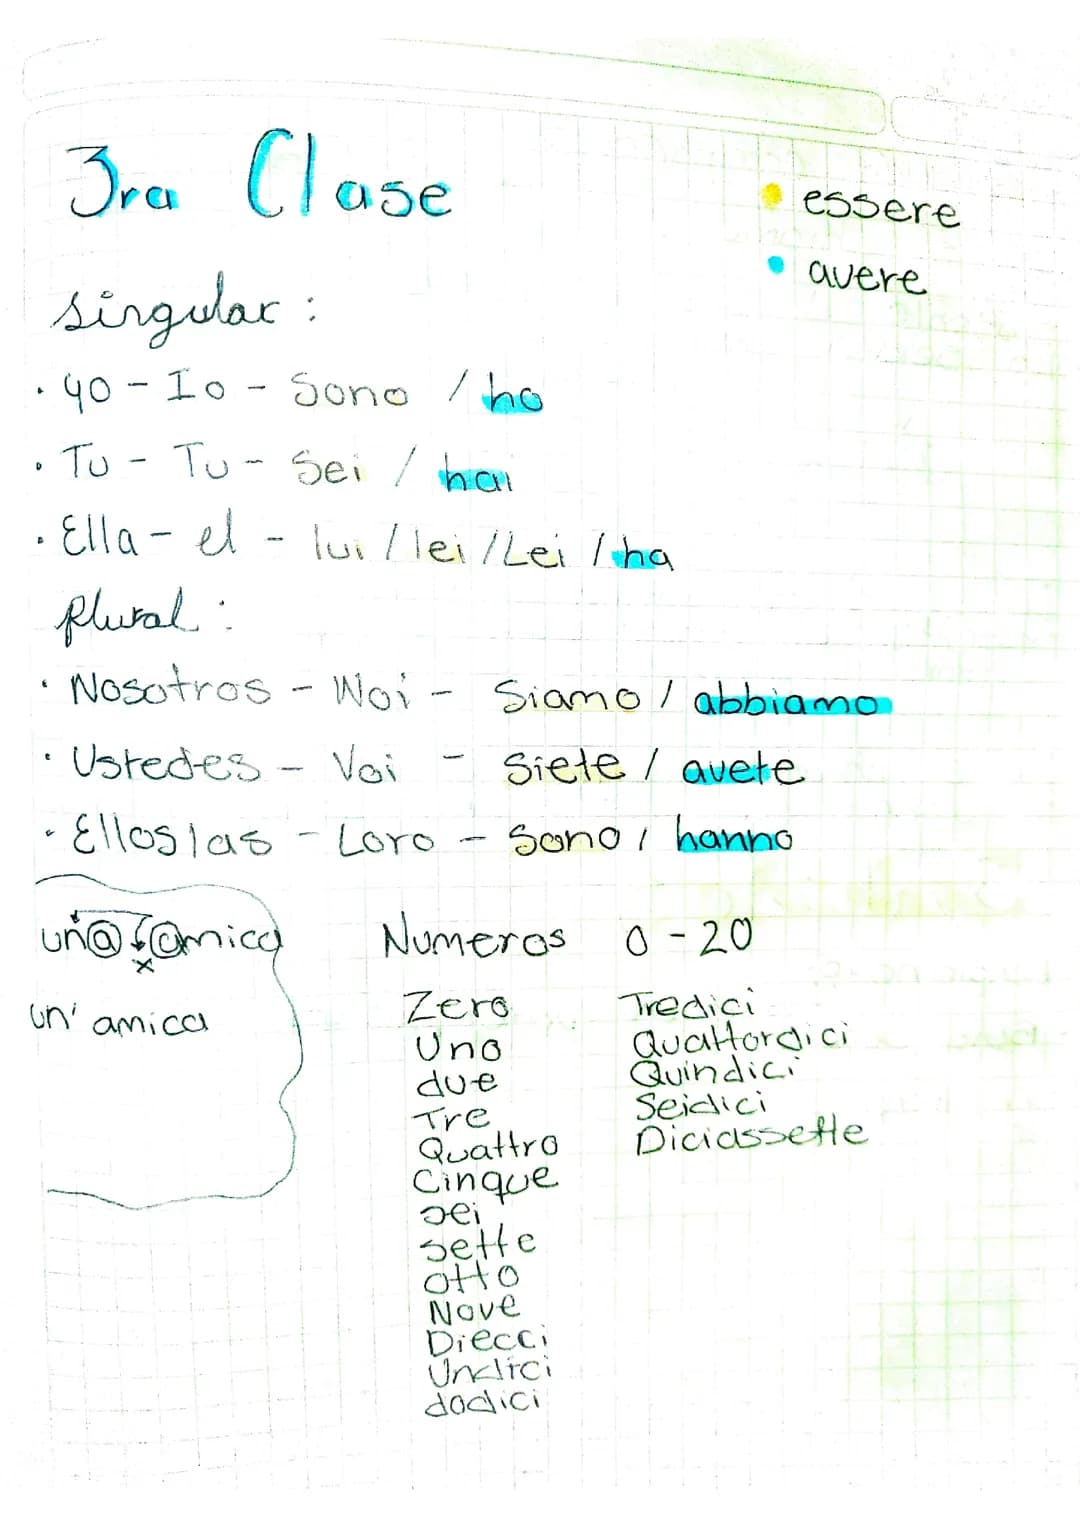 3ra Clase
• essere
• avere
singular:
• yo - Io - Sono / ho
• Tu - Tu - Sei / hai
• Ella - el - lui / lei / Lei / ha
plural:
• Nosotros - Noi - Siamo / abbiamo
• Ustedes - Voi - Siete / avete
• Ellos/as - Loro - Sono / hanno
una amica
x
un' amica
Numeros 0 - 20
Zero
Uno
due
Tre
Quattro
Cinque
sei
sette
otto
Nove
Diecci
Undici
dodici
Tredici
Quattordici
Quindici
Seidici
Diciassette